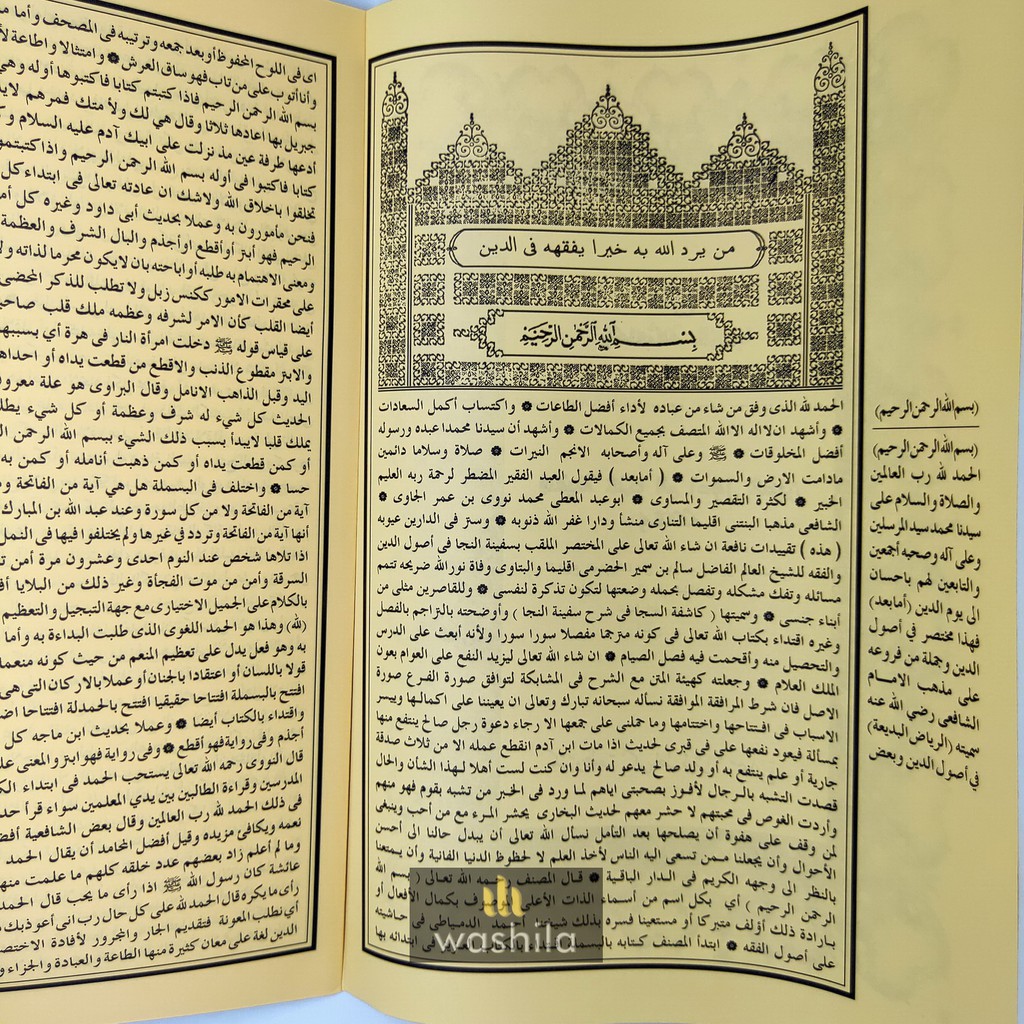 من يرد الله به خيرا يفقهه فى الدين
بسم الله الرحمن الرحيم
الحمد لله الذى وفق من شاء من عباده لأداء أفضل الطاعات ۞ واكتساب أكمل السعادات
۞ وأشهد ان لا اله الا الله المتصف بجميع الكمالات ۞ وأشهد أن سيدنا محمدا عبده ورسوله
أفضل المخلوقات ۞ ﷺ وعلى آله وأصحابه الانجم النيرات ۞ صلاة وسلاما دائمين
مادامت الارض والسموات ۞ ( أمابعد ) فيقول العبد الفقير المضطر لرحمة ربه العليم
الخبير ۞ لكثرة التقصير والمساوى ۞ ابوعبد المعطى محمد نووى بن عمر الجاوى ۞
الشافعى مذهبا البنتنى اقليما التنارى منشأ ودارا غفر الله ذنوبه ۞ وستر فى الدارين عيوبه
( هذه ) تقييدات نافعة ان شاء الله تعالى على المختصر الملقب بسفينة النجا فى أصول الدين
والفقه للشيخ العالم الفاضل سالم بن سمير الحضرمى اقليما والبتاوى وفاة نورالله ضريحه تتمم
مسائله وتفك مشكله وتفصل بحمله وضعتها لتكون تذكرة لنفسى ۞ وللقاصرين مثلى من
أبناء جنسى ۞ وسميتها ( كاشفة السجا فى شرح سفينة النجا ) وأوضحته بالتراجم بالفصل
وغيره اقتداء بكتاب الله تعالى فى كونه مترجما مفصلا سورا سورا ولأنه أبعث على الدرس
والتحصيل منه وأقحمت فيه فصل الصيام ۞ ان شاء الله تعالى ليزيد النفع على العوام بعون
الملك العلام ۞ وجعلته كهيئة المتن مع الشرح فى المشابكة لتوافق صورة الفرع صورة
الاصل فان شرط المرافقة الموافقة نسأله سبحانه تبارك وتعالى ان يعيننا على اكمالها وييسر
الاسباب فى افتتاحها واختتامها وما حملنى على جمعها الا رجاء دعوة رجل صالح ينتفع منها
بمسألة فيعود نفعها على فى قبرى لحديث اذا مات ابن آدم انقطع عمله الا من ثلاث صدقة
جارية أو علم ينتفع به أو ولد صالح يدعو له وأنا وان كنت لست أهلا لهذا الشأن والحال
قصدت التشبه بالرجال لأفوز بصحبتى اياهم لما ورد فى الخبر من تشبه بقوم فهو منهم
وأردت الغوص فى محبتهم لا حشر معهم لحديث البخارى يحشر المرء مع من أحب وينبغى
لمن وقف على هفوة أن يصلحها بعد التأمل نسأل الله تعالى أن يبدل حالنا الى أحسن
الأحوال وأن يجعلنا ممن تسعى اليه الناس لأخذ العلم لا لحظوظ الدنيا الفانية وأن يمتعنا
بالنظر الى وجهه الكريم فى الدار الباقية ۞ قال المصنف رحمه الله تعالى ( بسم الله
الرحمن الرحيم ) أي بكل اسم من أسماء الذات الأعلى الموصوف بكمال الأفعال أو
بارادة ذلك أؤلف متبركا أو مستعينا فسره بذلك شيخنا أحمد الدمياطى فى حاشيته
على أصول الفقه ۞ ابتدأ المصنف كتابه بالبسملة اقتداء بالكتاب العزيز فى ابتدائه بها
(بسم الله الرحمن الرحيم)
(بسم الله الرحمن الرحيم)
الحمد لله رب العالمين
والصلاة والسلام على
سيدنا محمد سيد المرسلين
وعلى آله وصحبه أجمعين
والتابعين لهم باحسان
الى يوم الدين (أمابعد)
فهذا مختصر في أصول
الدين وجملة من فروعه
على مذهب الامام
الشافعى رضي الله عنه
سميته (الرياض البديعة)
في أصول الدين وبعض
اى فى اللوح المحفوظ أو بعد جمعه وترتيبه فى المصحف وأما
وأنا أتوب على من تاب فهو ساق العرش ۞ وامتثالا واطاعة
بسم الله الرحمن الرحيم فاذا كتبتم كتابا فاكتبوها أوله وهى
جبريل بها اعادها ثلاثا وقال هي لك ولأمتك فمرهم
أدعها طرفة عين مذ نزلت على ابيك آدم عليه السلام و
كتابا فاكتبوا فى أوله بسم الله الرحمن الرحيم واذا كتبتمو
تخلقوا باخلاق الله ولاشك ان عادته تعالى فى ابتداء كل
فنحن مأمورون به وعملا بحديث أبى داود وغيره كل
الرحيم فهو أبتر أو أقطع او أجذم والبال الشرف والعظمة
ومعنى الاهتمام به طلبه أو اباحته بان لا يكون محرما لذاته
على محقرات الامور ككنس زبل ولا تطلب للذكر المحض
أيضا القلب كأن الامر لشرفه وعظمه ملك قلب
على قياس قوله ﷺ دخلت امرأة النار فى هرة أي بسببها
والابتر مقطوع الذنب والاقطع من قطعت يداه أو
اليد وقيل الذاهب الانامل وقال البراوى هو علة
الحديث كل شيء له شرف وعظمة أو كل شيء
يملك قلبا لايبدأ بسبب ذلك الشيء ببسم الله الرحمن
أو كمن قطعت يداه أو كمن ذهبت أنامله أو كمن به
حسا ۞ واختلف فى البسملة هل هي آية من الفاتحة
آية من الفاتحة ولا من كل سورة وعند عبد الله بن المبارك
أنها آية من الفاتحة وتردد في غيرها ولم يختلفوا فيها فى النمل
اذا تلاها شخص عند النوم احدى وعشرون مرة أمن
السرقة وأمن من موت الفجأة وغير ذلك من البلايا
بالكلام على الجميل الاختيارى مع جهة التبجيل والتعظيم
(لله) وهذا هو الحمد اللغوى الذى طلبت البداءة به وأما
به وهو فعل يدل على تعظيم المنعم من حيث كونه منعما
قولا باللسان أو اعتقادا بالجنان أو عملا بالاركان التى هى
افتتح بالبسملة افتتاحا حقيقيا افتتح بالحمدلة افتتاحا
واقتداء بالكتاب أيضا ۞ وعملا بحديث ابن ماجه كل
أجذم وفى رواية فهو أقطع ۞ وفى رواية فهو ابتر والمعنى
قال النووى رحمه الله تعالى يستحب الحمد فى ابتداء
المدرسين وقراءة الطالبين بين يدي المعلمين سواء قرأ
فى ذلك الحمد لله رب العالمين وقال بعض الشافعية
نعمه ويكافئ مزيده وقيل أفضل المحامد أن يقال الحمد
وما لم أعلم زاد بعضهم عدد خلقه كلهم ما علمت
عائشة كان رسول الله ﷺ اذا رأى ما يحب قال
رأى ما يكره قال الحمد لله على كل حال رب انى أعوذ بك
أي نطلب المعونة فتقديم الجار والمجرور لأفادة
الدين لغة على معان كثيرة منها الطاعة والعبادة والجزاء
washila